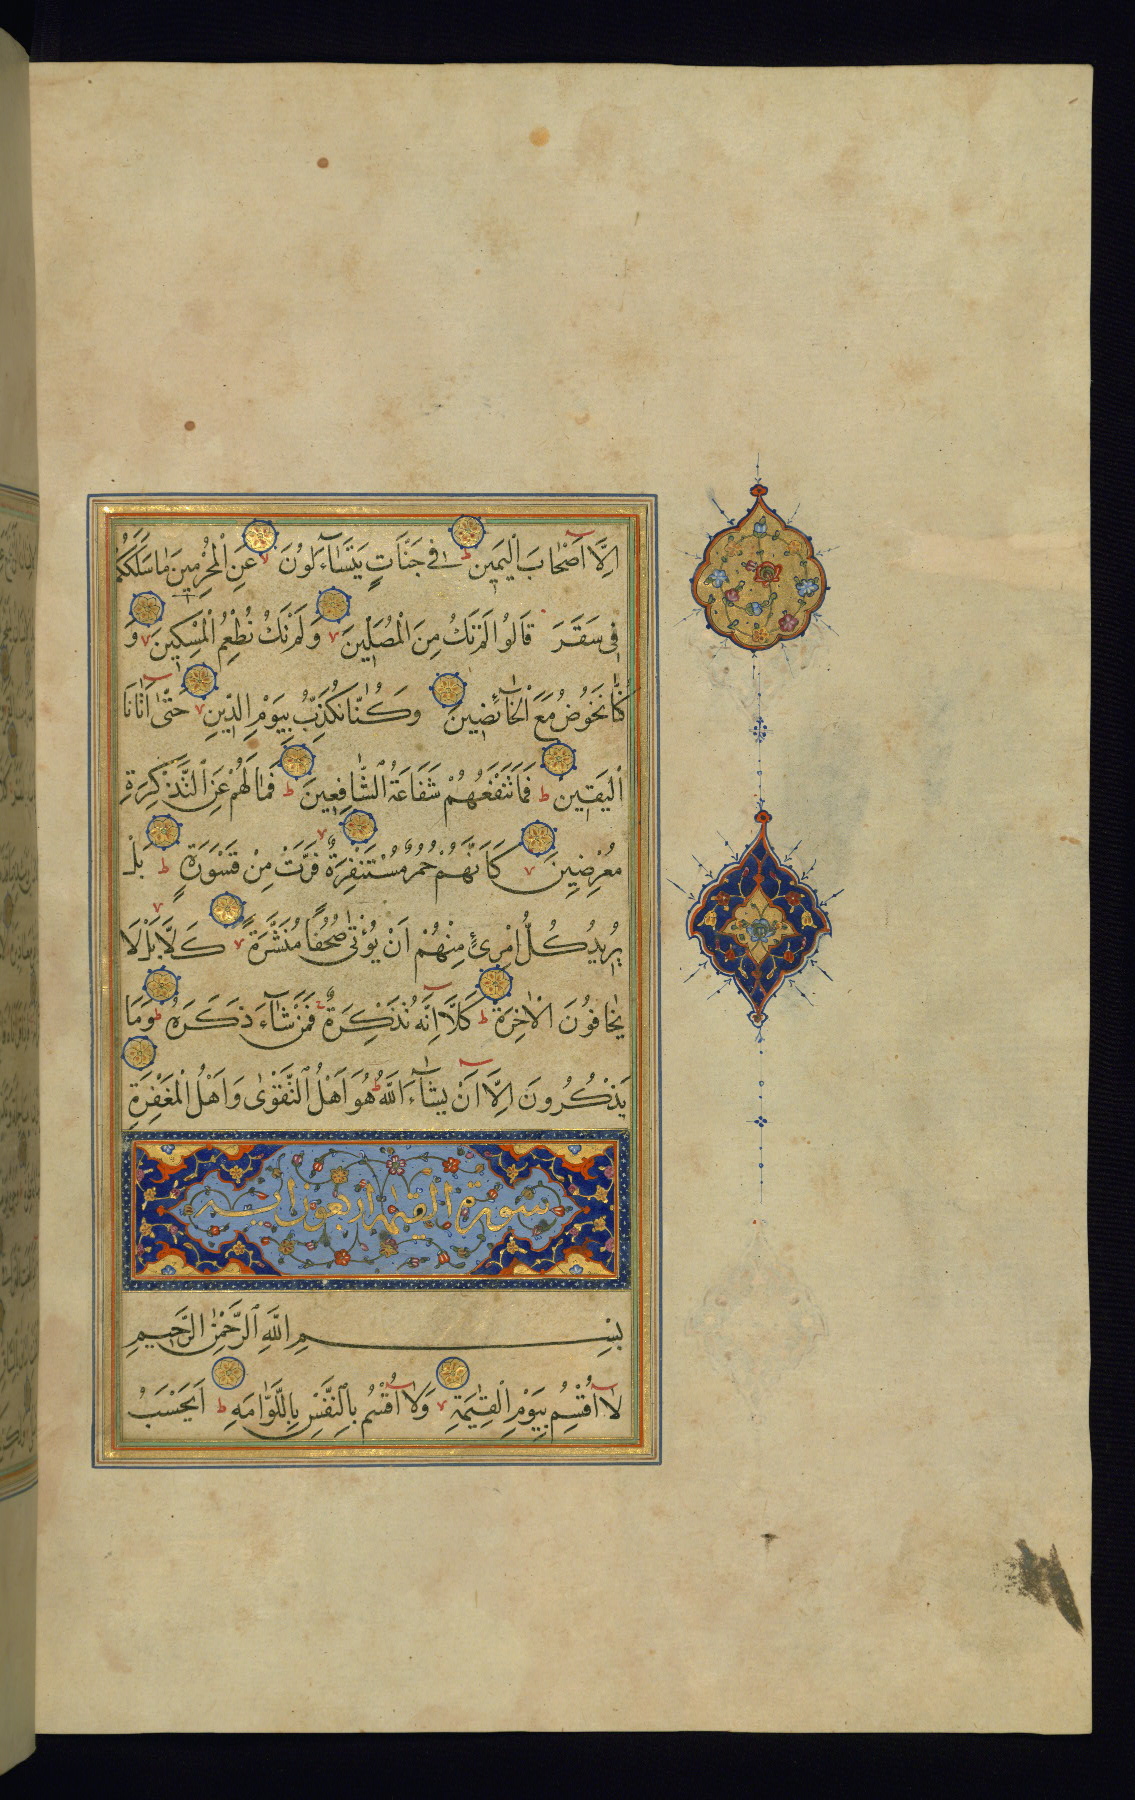 اِلَّا اَصْحَابَ الْيَمِينِ ط فِى جَنَّاتٍ يَتَسَآءَلُونَ عَنِ الْمُجْرِمِينَ مَا سَلَكَكُمْ
فِى سَقَرَ قَالُوا لَمْ نَكُ مِنَ الْمُصَلِّينَ وَلَمْ نَكُ نُطْعِمُ الْمِسْكِينَ وَ
كُنَّا نَخُوضُ مَعَ الْخَآئِضِينَ وَكُنَّا نُكَذِّبُ بِيَوْمِ الدِّينِ حَتّٰى اَتٰانَا
الْيَقِينُ ط فَمَا تَنْفَعُهُمْ شَفَاعَةُ الشَّافِعِينَ ط فَمَا لَهُمْ عَنِ التَّذْكِرَةِ
مُعْرِضِينَ كَاَنَّهُمْ حُمُرٌ مُسْتَنْفِرَةٌ فَرَّتْ مِنْ قَسْوَرَةٍ ط بَلْ
يُرِيدُ كُلُّ امْرِئٍ مِنْهُمْ اَنْ يُؤْتٰى صُحُفًا مُنَشَّرَةً كَلَّا بَلْ لَا
يَخَافُونَ الْاٰخِرَةَ ط كَلَّا اِنَّهُ تَذْكِرَةٌ فَمَنْ شَآءَ ذَكَرَهُ ط وَمَا
يَذْكُرُونَ اِلَّا اَنْ يَشَآءَ اللّٰهُ ط هُوَ اَهْلُ التَّقْوٰى وَاَهْلُ الْمَغْفِرَةِ
سورة القيمة اربعون اية
بِسْمِ اللّٰهِ الرَّحْمٰنِ الرَّحِيمِ
لَآ اُقْسِمُ بِيَوْمِ الْقِيٰمَةِ وَلَآ اُقْسِمُ بِالنَّفْسِ اللَّوَّامَةِ ط اَيَحْسَبُ